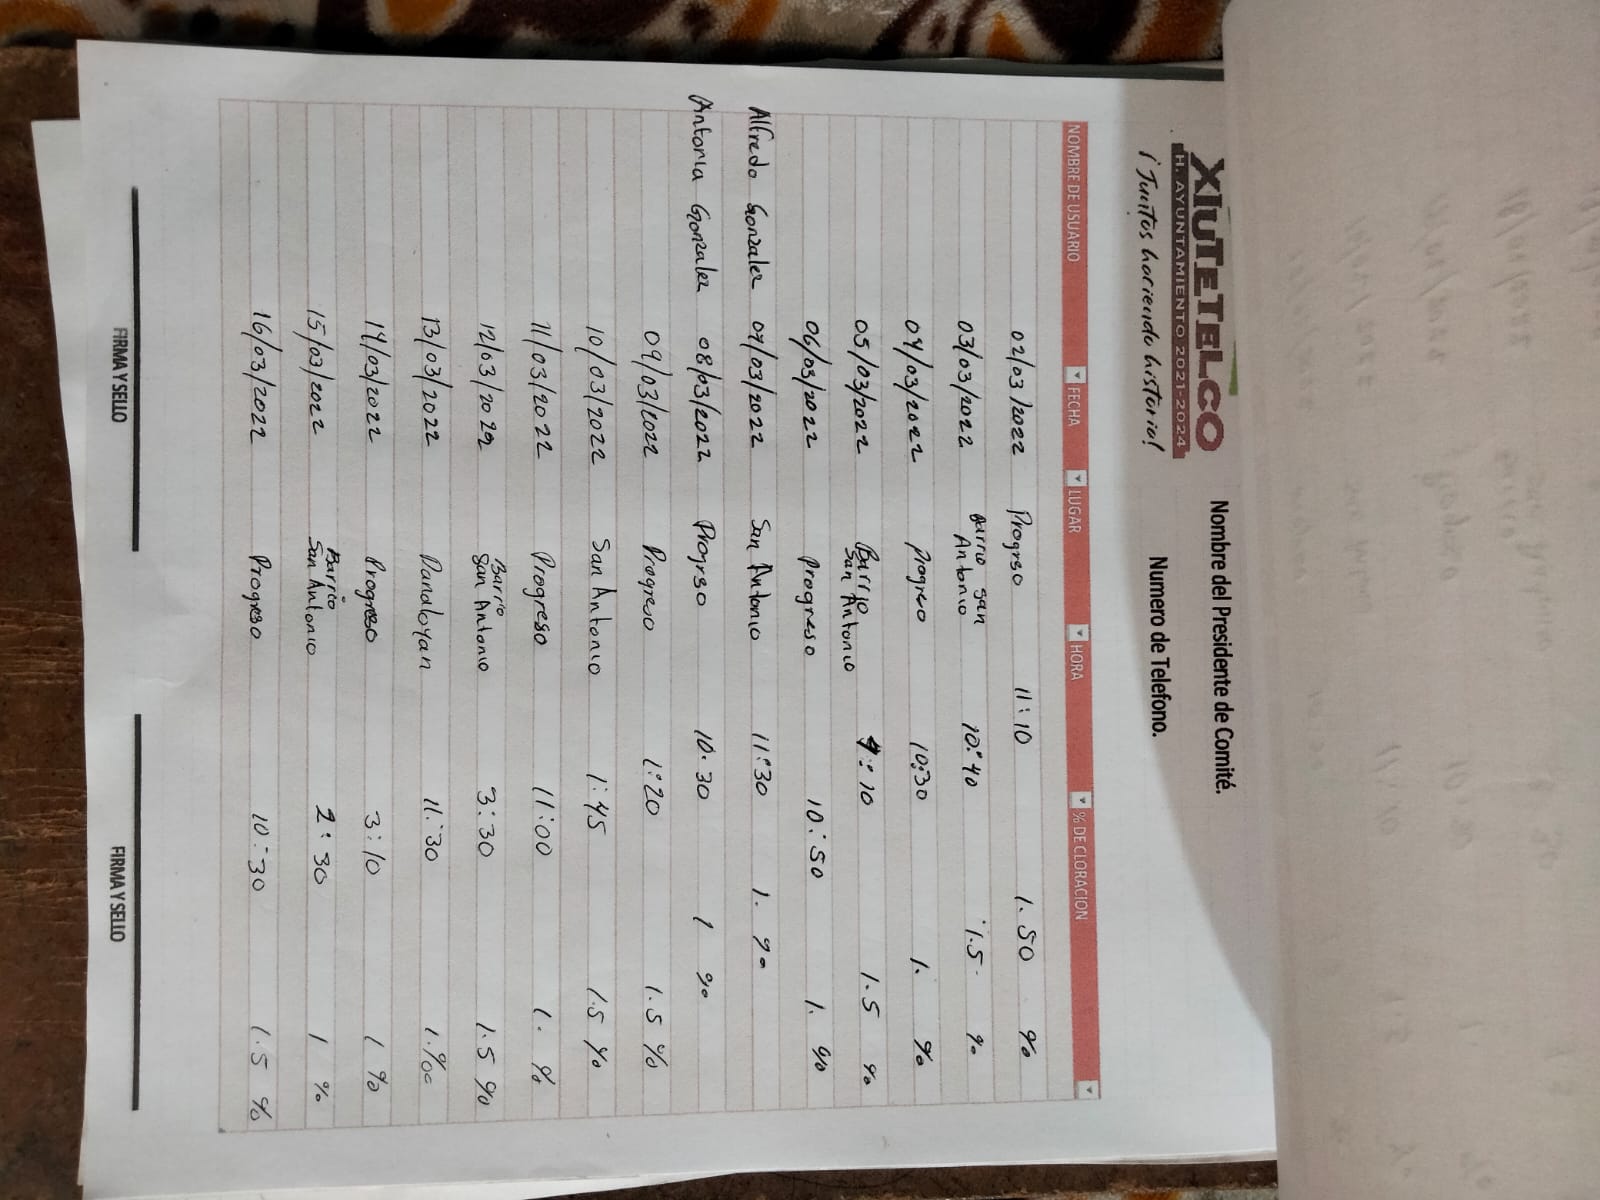 XIUTETELCO
H. AYUNTAMIENTO 2021-2024
¡Juntos haciendo historia!
Nombre del Presidente de Comité.
Numero de Telefono.
NOMBRE DE USUARIO FECHA LUGAR HORA % DE CLORACION
02/03/2022 Progrso 11:10 1.50 %
03/03/2022 Barrio San Antonio 10:40 1.5 %
04/03/2022 Progreo 10:30 1. %
05/03/2022 Barrio San Antonio 9:10 1.5 %
06/03/2022 Progreso 10:50 1. %
Alfredo Gonzalez 07/03/2022 San Antonio 11:30 1. %
Antonia Gonzalez 08/03/2022 Progrso 10:30 1 %
09/03/2022 Progreso 1:20 1.5 %
10/03/2022 San Antonio 1:45 1.5 %
11/03/2022 Progreso 11:00 1. %
12/03/2022 Barrio San Antonio 3:30 1.5 %
13/03/2022 11:30 1.%
14/03/2022 Progreso 3:10 1 %
15/03/2022 Barrio San Antonio 2:30 1 %
16/03/2022 Progreso 10:30 1.5 %
FIRMA Y SELLO FIRMA Y SELLO